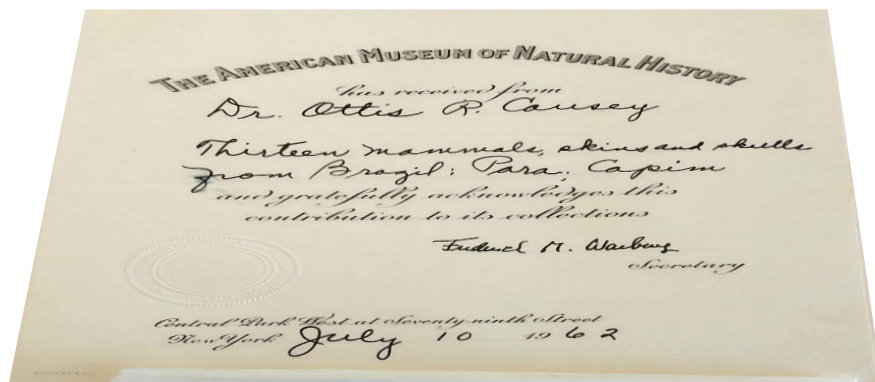 THE AMERICAN MUSEUM OF NATURAL HISTORY
has received from
Dr. Ottis R. Causey
Thirteen mammals, skins and skulls
from Brazil: Para; Capim
and gratefully acknowledges this
contribution to its collections
Frederick M. Warburg
Secretary
Central Park West at Seventy-ninth Street
New York July 10 1962